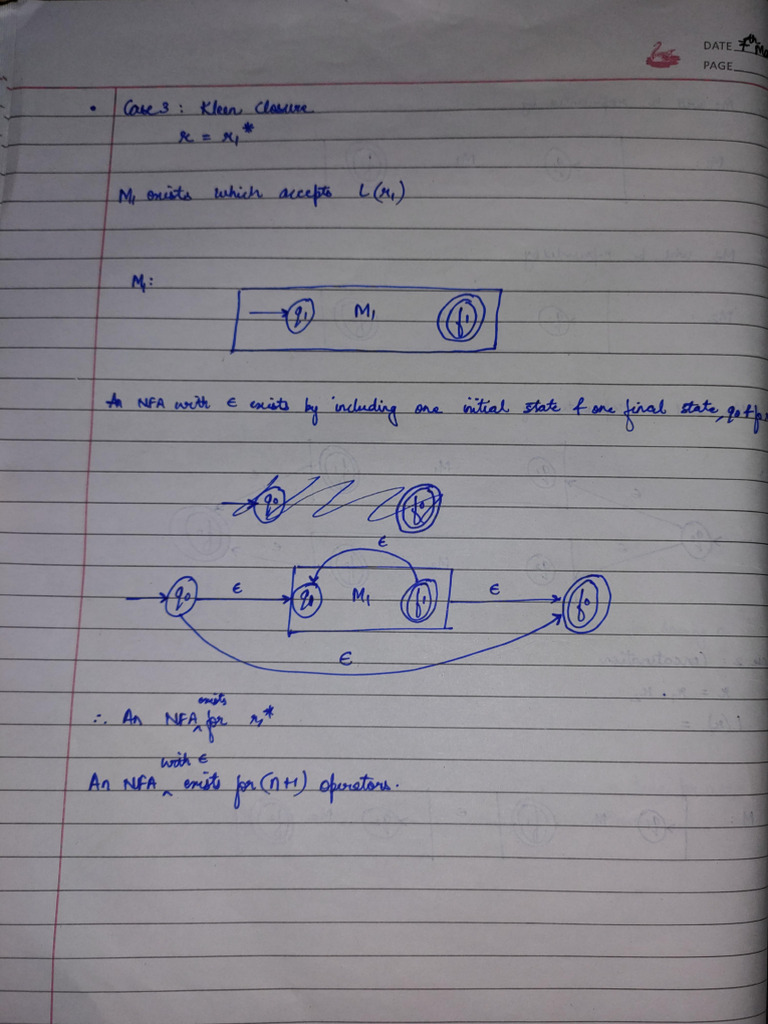 DATE 7th Ma
PAGE
• Case 3 : Kleen Closure
r = r₁*
M₁ exists which accepts L(r₁)
M₁:
q₁ M₁ f₁
An NFA with ϵ exists by including one initial state & one final state, q₀ & f₀
q₀ f₀
ϵ
q₀ ϵ q₁ M₁ f₁ ϵ f₀
ϵ
∴ An NFA exists for r₁*
An NFA with ϵ exists for (n+1) operators.